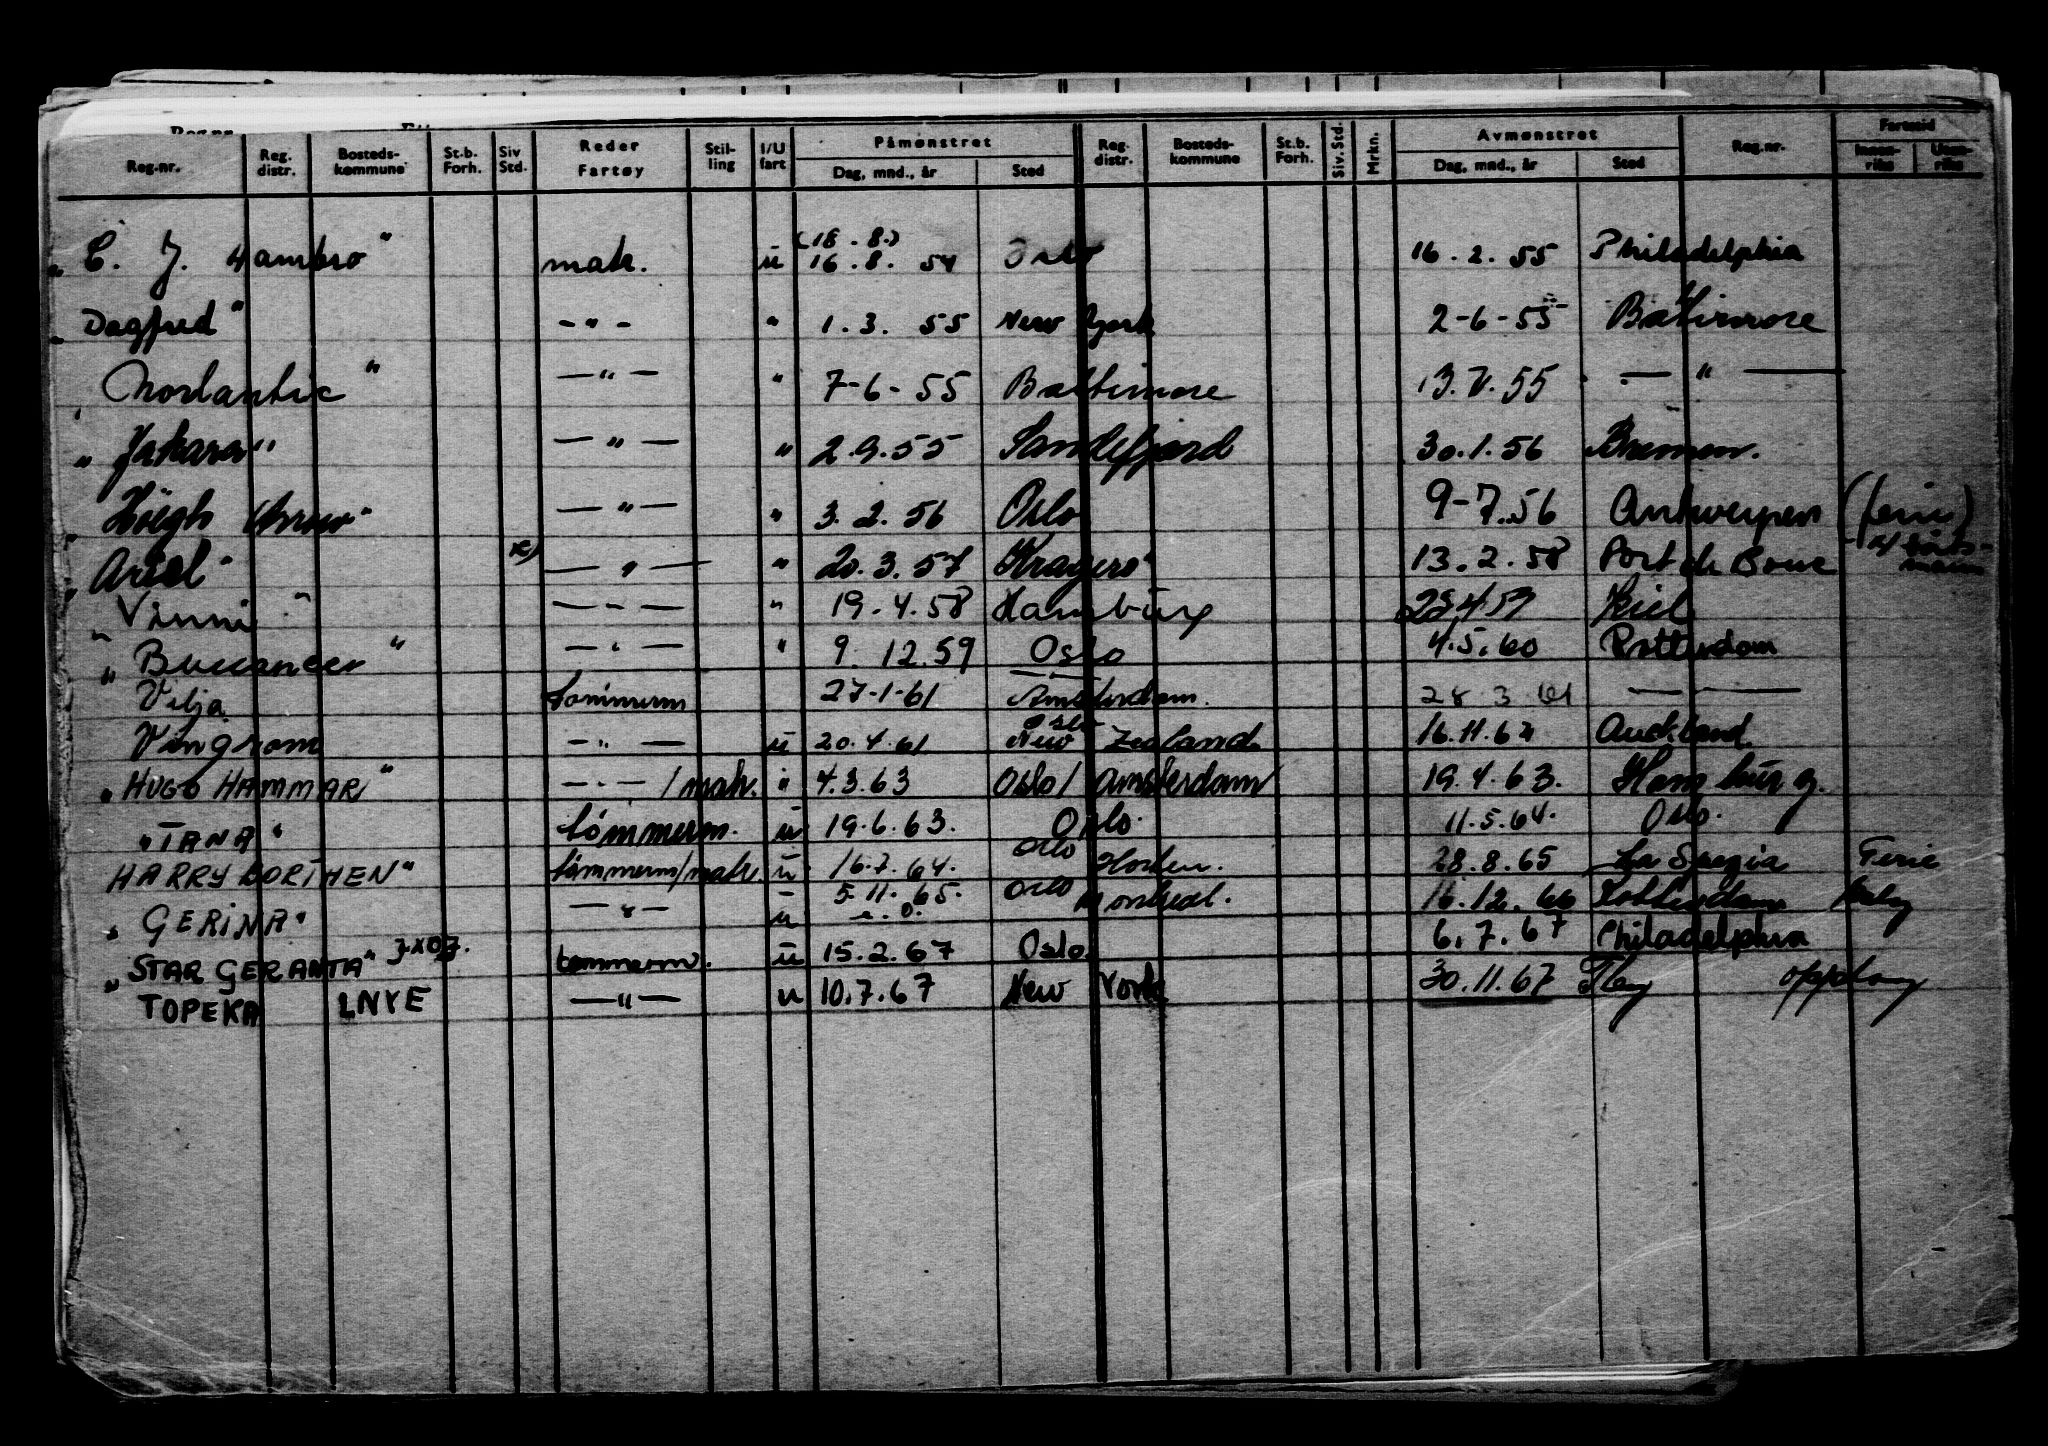 Reg.nr. Reg. distr. Bosteds- kommune St.b. Forh. Siv Std. Reder Fartøy Stil- ling I/U fart Påmønstret Dag, mnd., år Sted Reg. distr. Bosteds- kommune St.b. Forh. Siv. Std. Mrkn. Avmønstret Dag, mnd., år Sted Reg.nr. Fartstid Innen- riks Uten- riks
(18.8.)
„ C. J. Hambro" matr. ū 16.8. 54 Oslo 16.2.55 Philadelphia
„ Dagfred" -"- " 1.3. 55 New York 2-6-55 Baltimore
„ Norlantic" -"- " 7-6-55 Baltimore 13.7.55 -"-
„ Jakara" -"- " 2.9.55 Sandefjord 30.1.56 Bremen.
„ Höegh Arrow" -"- " 3.2.56 Oslo 9-7.56 Antwerpen (ferie)
„ Ariel" x) -"- " 20.3.57 Kragerø 13.2.58 Port de Bouc x/ båts- mann
„ Vinni" -"- " 19.4.58 Hamburg 4.59 Kiel
„ Buccaneer" -"- " 9.12.59 Oslo 4.5.60 Rotterdam
Vilja tømmerm 27-1-61 Amsterdam. 28 3 61 -
Vingrom -"- ū 20.4.61 Oslo New Zealand 16.11.62 Auckland.
„ HUGO HAMMAR" -"- / matr. " 4.3.63 Oslo/ Amsterdam 19.4.63. Hamburg.
„ TANA" tømmerm. ū 19.6.63. Oslo. 11.5.64. Oslo.
HARRY BORTHEN" tømmerm/matr. ū 16.7.64. Oslo Horten. 28.8.65 La Spezia Ferie
„ GERINA" -"- ū 5.11.65. Oslo Montreal. 16.12.66 Rotterdam
„ STAR GERANTA" JXOJ. tømmerm. ū 15.2.67 Oslo 6.7.67 Philadelphia
TOPEKA LNVE -"- u 10.7.67 New York 30.11.67